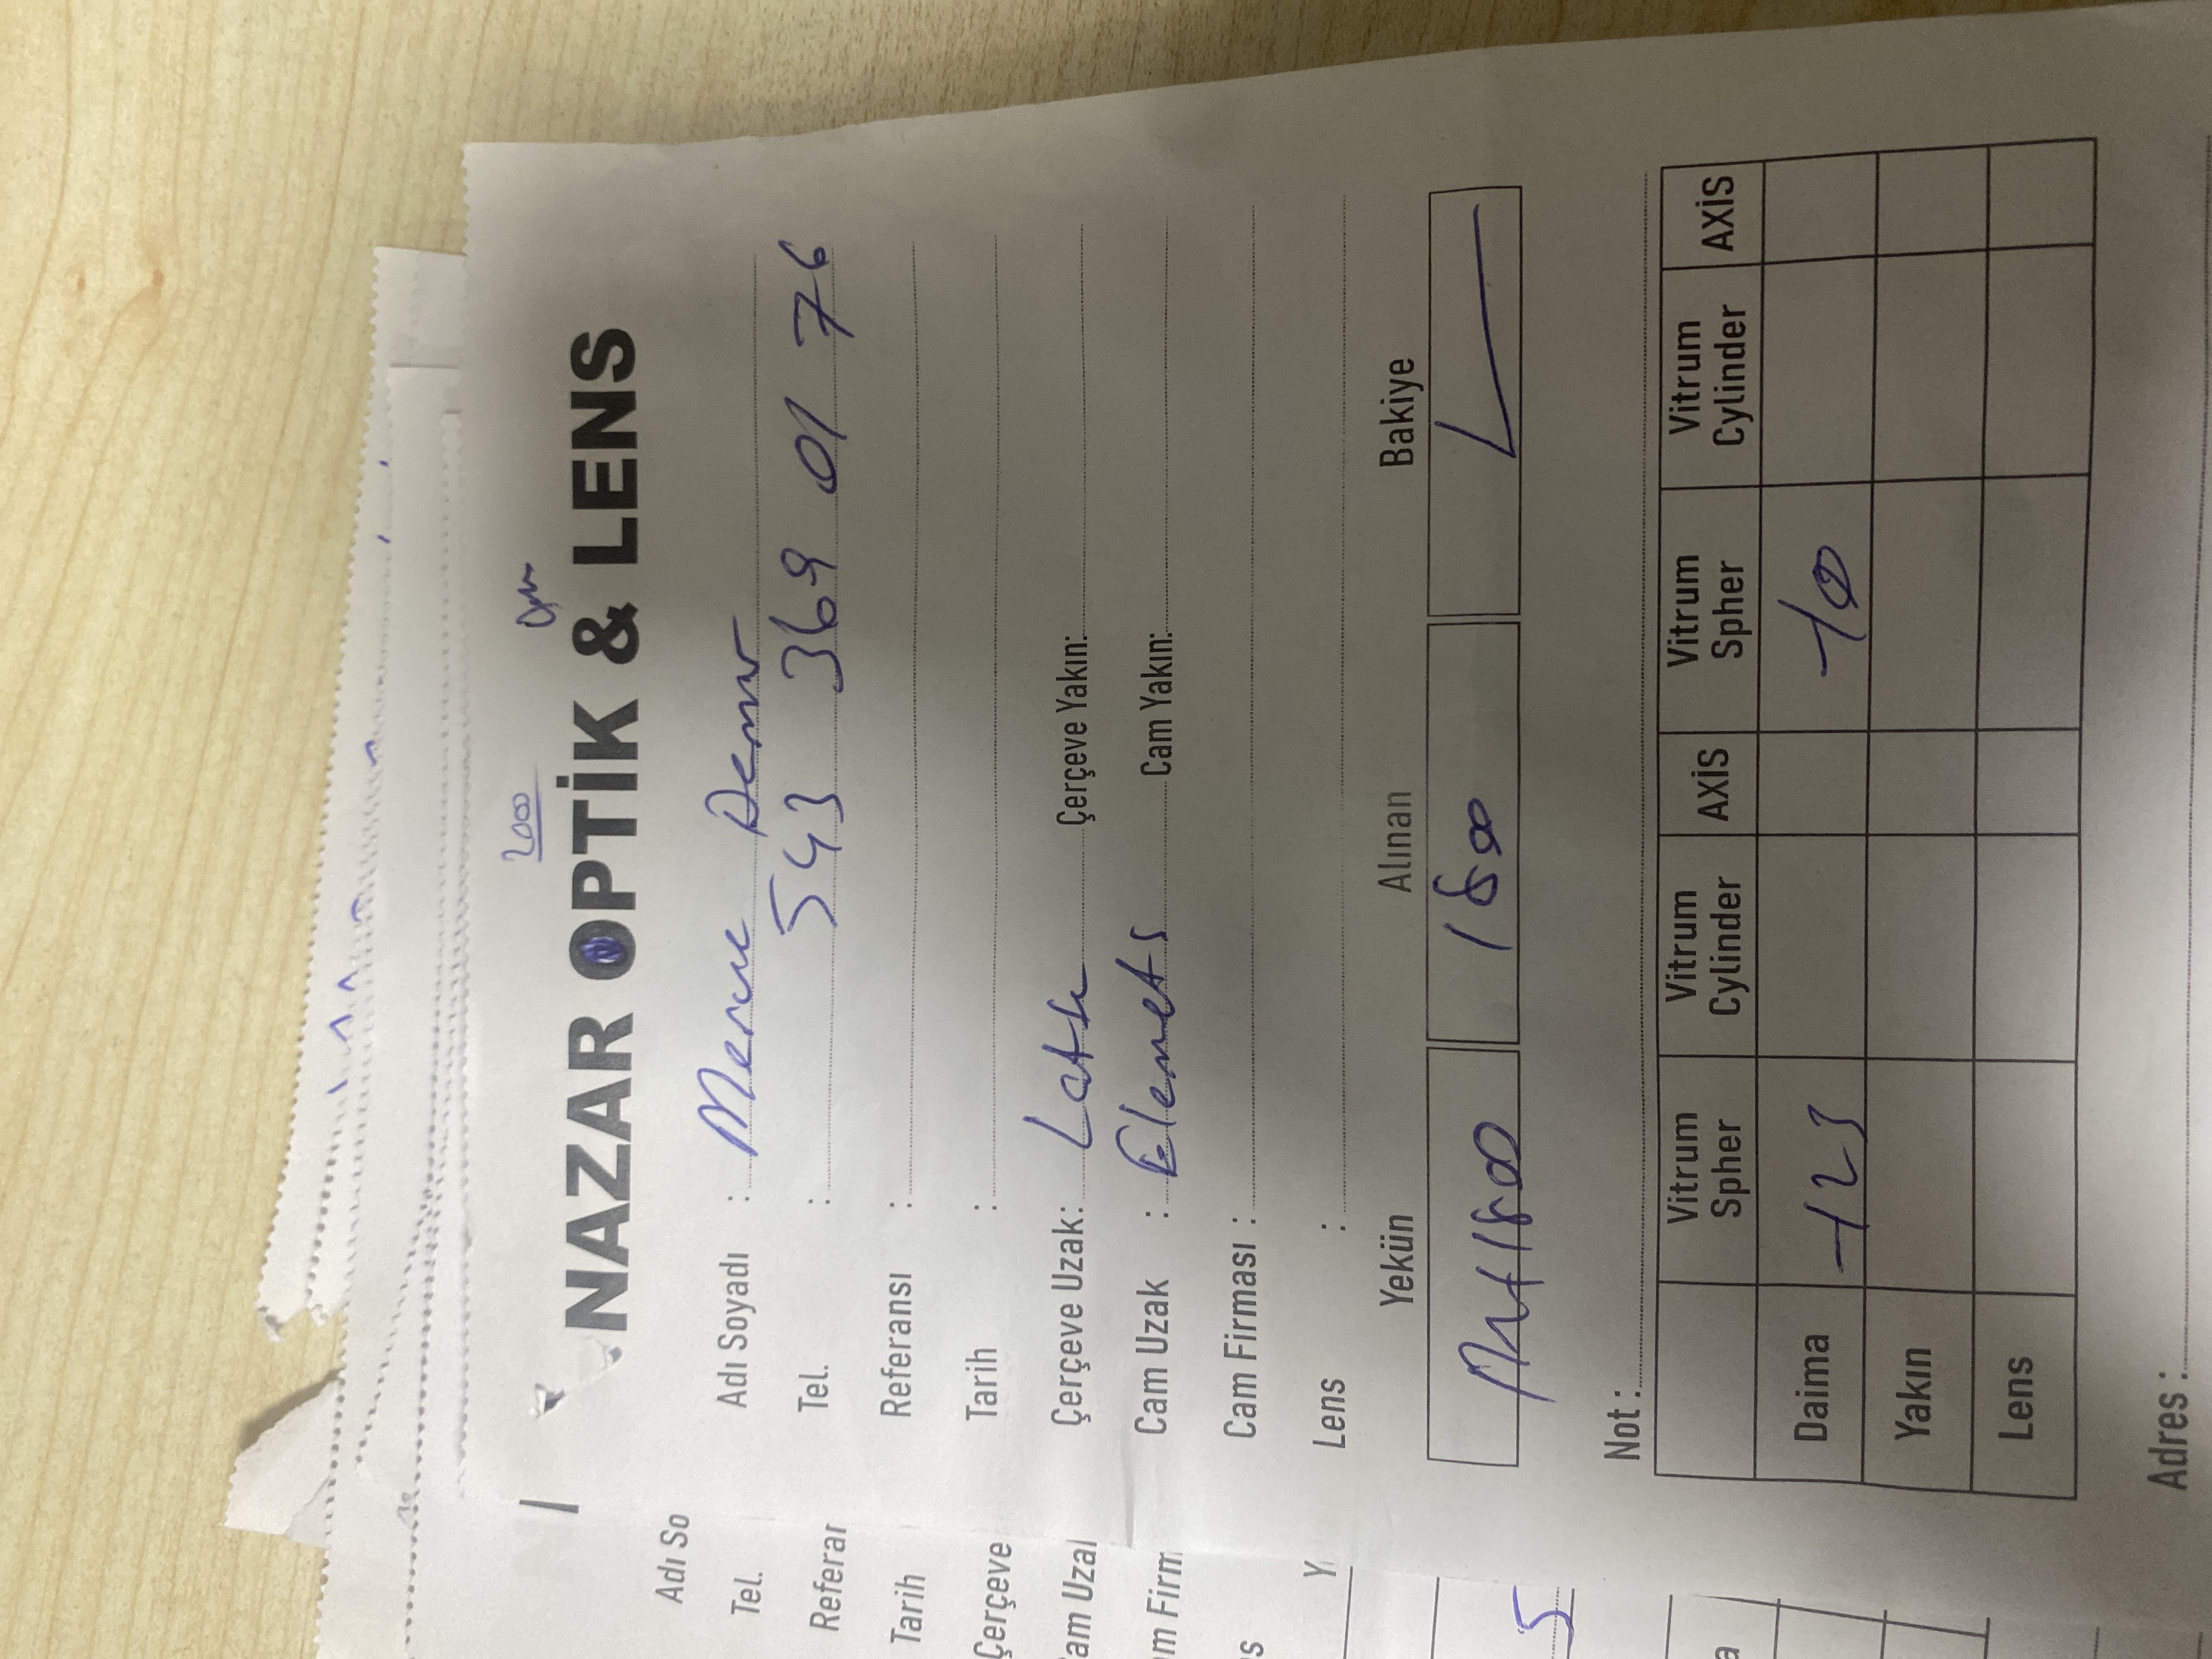 2000
NAZAR OPTİK & LENS
Adı So
Tel.
Referar
Tarih
Çerçeve
am Uzal
m Firm
s
5
a
Adı Soyadı : Merve Demir
Tel. : 543 369 01 76
Referansı :
Tarih :
Çerçeve Uzak: Çerçeve Yakın:
Cam Uzak : Elemets Cam Yakın:
Cam Firması :
Lens :
Yekün Alınan Bakiye
1800 1800
Not :
Vitrum Spher Vitrum Cylinder AXİS Vitrum Spher Vitrum Cylinder AXİS
Daima
Yakın
Lens
Adres :